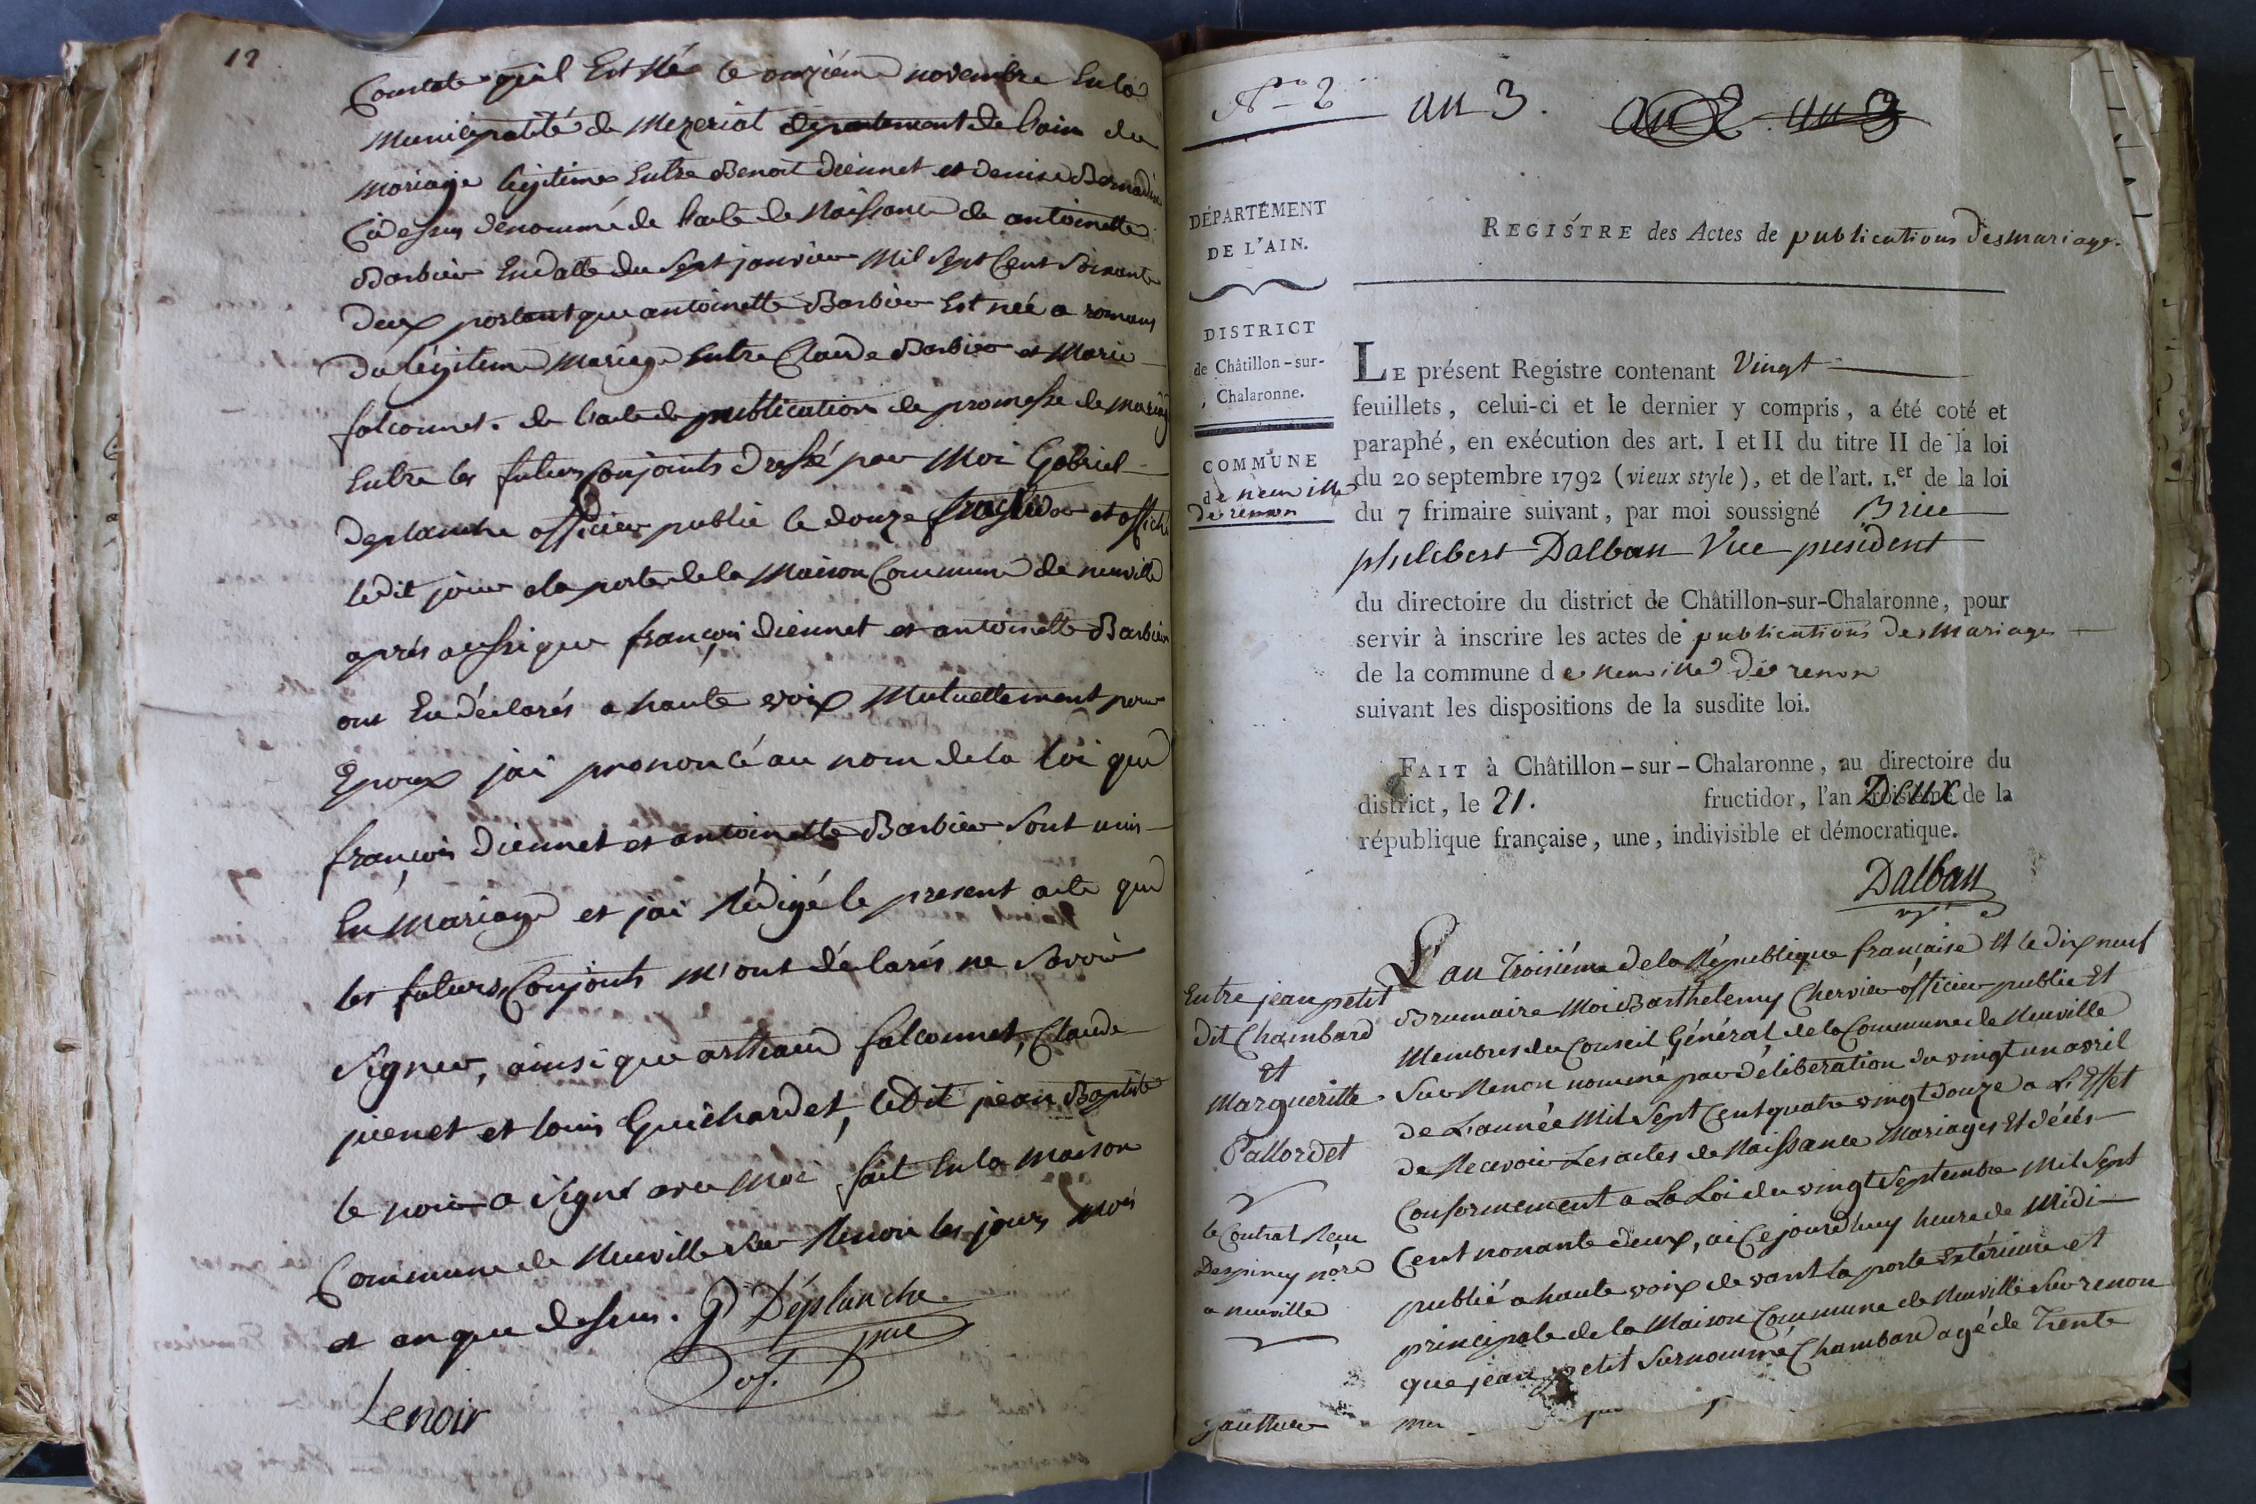 12
Constate qu'il Est Né le onziéme novembre En la
Municipalité de Mezeriat département de l'ain du
Mariage légitime Entre Benoit Diennet et denise Bernardin
Cidessus dénommé de l'acte de Naissance de antoinette
Barbier En datte du Sept janvier Mil Sept Cent Soixante
Deux portant que antoinette Barbier Est née a romans
du légitime Mariage Entre Claude Barbier et Marie
falconnet. de l'acte de publication de promesse de mariage
Entre les futurs Conjoints dressé par Moi Gabriel
Deplanche officier public le douze fructidor et affiché
ledit jour a la porte de la Maison Commune de neuville
aprés aussi que françois Diennet et antoinette Barbier
ont Eu déclarés a haute voix Mutuellement pour
Epoux jai prononcé au nom de la loi que
françois Diennet et antoinette Barbier Sont unis
En Mariage et jai Rédigé le present acte que
les futurs Conjoints m'ont déclarés ne Savoir
Signer, ainsi que arthaud falconnet, Claude
pienet et louis Guichardet, ledit jean Baptiste
le noir a Signé avec Moi fait En la Maison
Commune de Neuville Sur Renon les jours Mois
et an que dessus. G Déplanche
of. puc
Lenoir
N.º 2 an 3. an 2 an 3
DÉPARTEMENT
DE L'AIN.
DISTRICT
de Châtillon-sur-
Chalaronne.
COMMUNE
de neuville
de renon
REGISTRE des Actes de publications des mariages.
LE présent Registre contenant Vingt
feuillets, celui-ci et le dernier y compris, a été coté et
paraphé, en exécution des art. I et II du titre II de la loi
du 20 septembre 1792 (vieux style), et de l'art. 1.er de la loi
du 7 frimaire suivant, par moi soussigné Brice
philibert Dalban Vice president
du directoire du district de Châtillon-sur-Chalaronne, pour
servir à inscrire les actes de publications des Mariages
de la commune de neuille de renon
suivant les dispositions de la susdite loi.
FAIT à Châtillon-sur-Chalaronne, au directoire du
district, le 21. fructidor, l'an Deux de la
république française, une, indivisible et démocratique.
Dalban
Entre jean petit
dit Chambard
et
Margueritte
Pallordet
le Contrat Reçu
Despiney nore
a neuville
L'an Troisiéme de la République française Et le dix neuf
Brumaire Moi Barthelemy Chervier officier public Et
Membres du Conseil Général de la Commune de Neuville
Sur Renon nommé par délibération du vingt un avril
de L'année Mil Sept Cent quatre vingt douze a L'Effet
de Recevoir Les actes de Naissance Mariages Et décés
Conformement a La Loi du vingt Septembre Mil Sept
Cent nonante deux, ai Cejourdhuy heure de Midi
publié a haute voix devant la porte Extérieure et
principale de la Maison Commune de Neuville Sur renon
que jean petit Surnommé Chambard agé de Trente